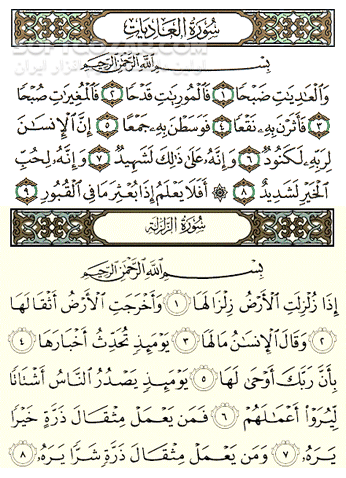 سُورَةُ العَادِيَاتِ
بِسْمِ ٱللَّهِ ٱلرَّحْمَٰنِ ٱلرَّحِيمِ
وَٱلْعَٰدِيَٰتِ ضَبْحًا ۝١ فَٱلْمُورِيَٰتِ قَدْحًا ۝٢ فَٱلْمُغِيرَٰتِ صُبْحًا
۝٣ فَأَثَرْنَ بِهِۦ نَقْعًا ۝٤ فَوَسَطْنَ بِهِۦ جَمْعًا ۝٥ إِنَّ ٱلْإِنسَٰنَ
لِرَبِّهِۦ لَكَنُودٌ ۝٦ وَإِنَّهُۥ عَلَىٰ ذَٰلِكَ لَشَهِيدٌ ۝٧ وَإِنَّهُۥ لِحُبِّ
ٱلْخَيْرِ لَشَدِيدٌ ۝٨ ۞ أَفَلَا يَعْلَمُ إِذَا بُعْثِرَ مَا فِى ٱلْقُبُورِ ۝٩
سُورَةُ الزَّلْزَلَةِ
بِسْمِ ٱللَّهِ ٱلرَّحْمَٰنِ ٱلرَّحِيمِ
إِذَا زُلْزِلَتِ ٱلْأَرْضُ زِلْزَالَهَا ۝١ وَأَخْرَجَتِ ٱلْأَرْضُ أَثْقَالَهَا
۝٢ وَقَالَ ٱلْإِنسَٰنُ مَا لَهَا ۝٣ يَوْمَئِذٍ تُحَدِّثُ أَخْبَارَهَا ۝٤
بِأَنَّ رَبَّكَ أَوْحَىٰ لَهَا ۝٥ يَوْمَئِذٍ يَصْدُرُ ٱلنَّاسُ أَشْتَاتًا
لِّيُرَوْا۟ أَعْمَٰلَهُمْ ۝٦ فَمَن يَعْمَلْ مِثْقَالَ ذَرَّةٍ خَيْرًا
يَرَهُۥ ۝٧ وَمَن يَعْمَلْ مِثْقَالَ ذَرَّةٍ شَرًّا يَرَهُۥ ۝٨